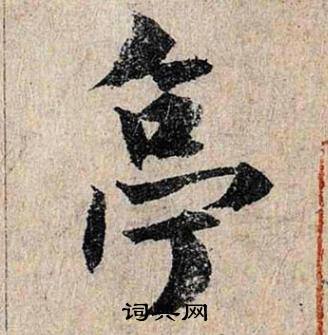 亭
词典网